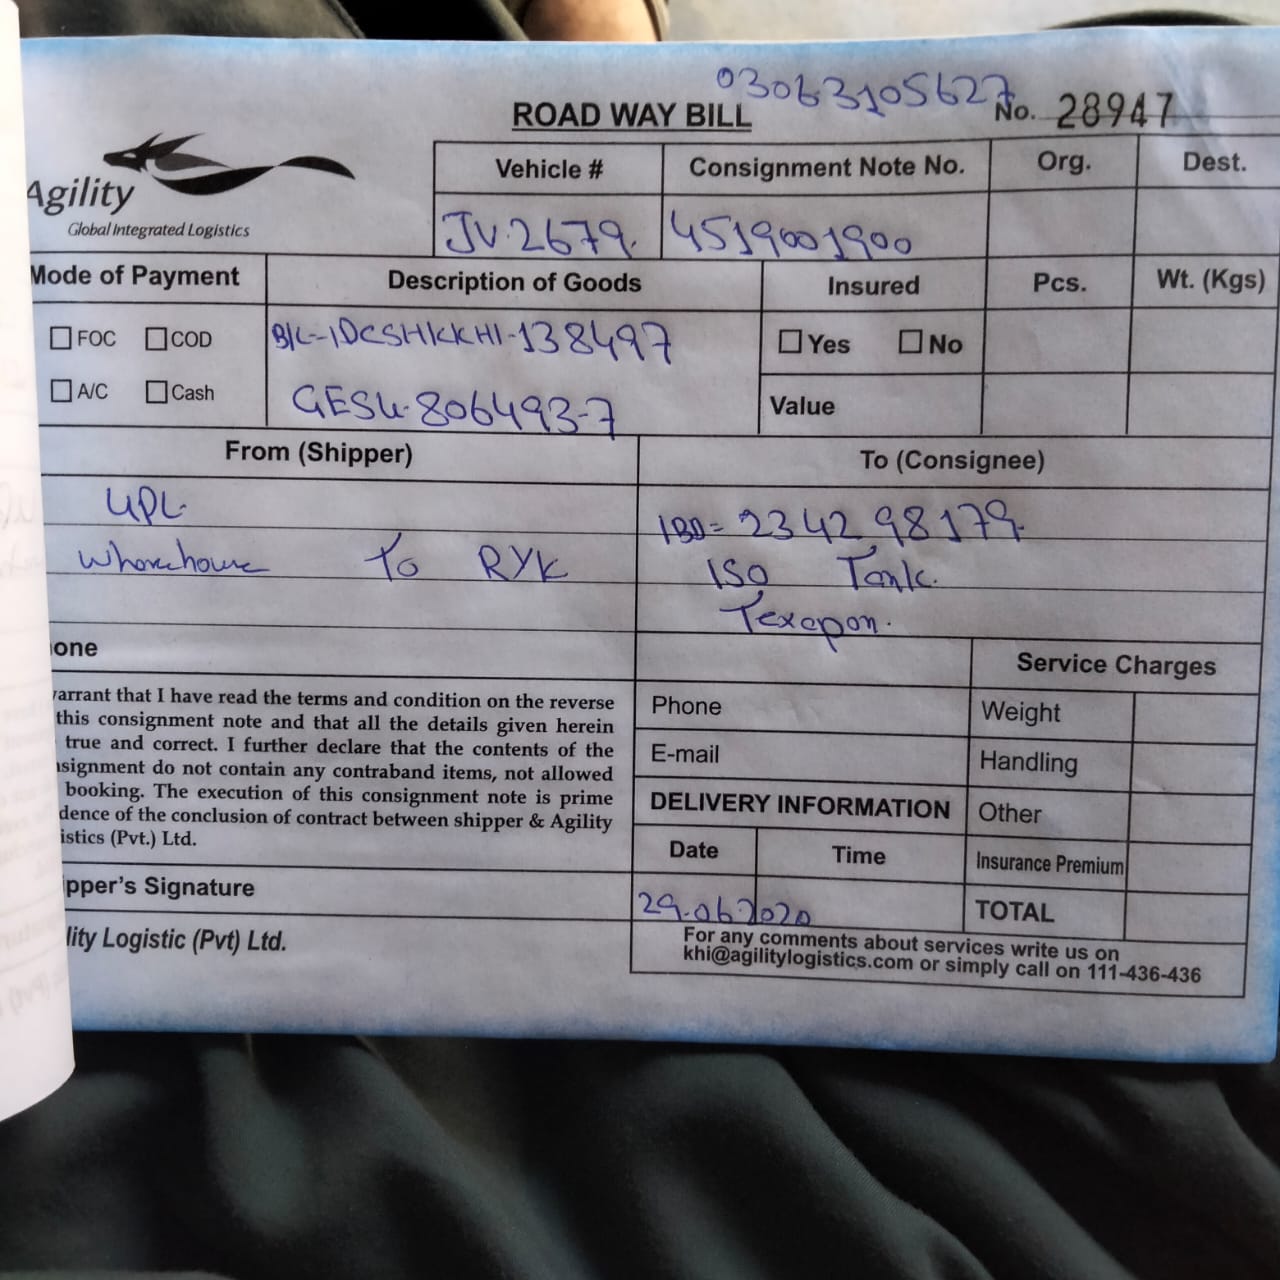 03063105627
ROAD WAY BILL
No. 28947
Agility
Global Integrated Logistics
Vehicle #
Consignment Note No.
Org.
Dest.
JV.2679.
4519001900
Mode of Payment
Description of Goods
Insured
Pcs.
Wt. (Kgs)
FOC
COD
B/L-IDCSHKKHI-138497
Yes
No
A/C
Cash
GESU-806493-7
Value
From (Shipper)
To (Consignee)
UPL
IBD= 2342 98179.
Wharehouse To RYK
ISO Tank.
Texapon.
one
Service Charges
arrant that I have read the terms and condition on the reverse
this consignment note and that all the details given herein
true and correct. I further declare that the contents of the
nsignment do not contain any contraband items, not allowed
booking. The execution of this consignment note is prime
dence of the conclusion of contract between shipper & Agility
istics (Pvt.) Ltd.
Phone
Weight
E-mail
Handling
DELIVERY INFORMATION
Other
Date
Time
Insurance Premium
ipper's Signature
29.06.2020
TOTAL
lity Logistic (Pvt) Ltd.
For any comments about services write us on
khi@agilitylogistics.com or simply call on 111-436-436